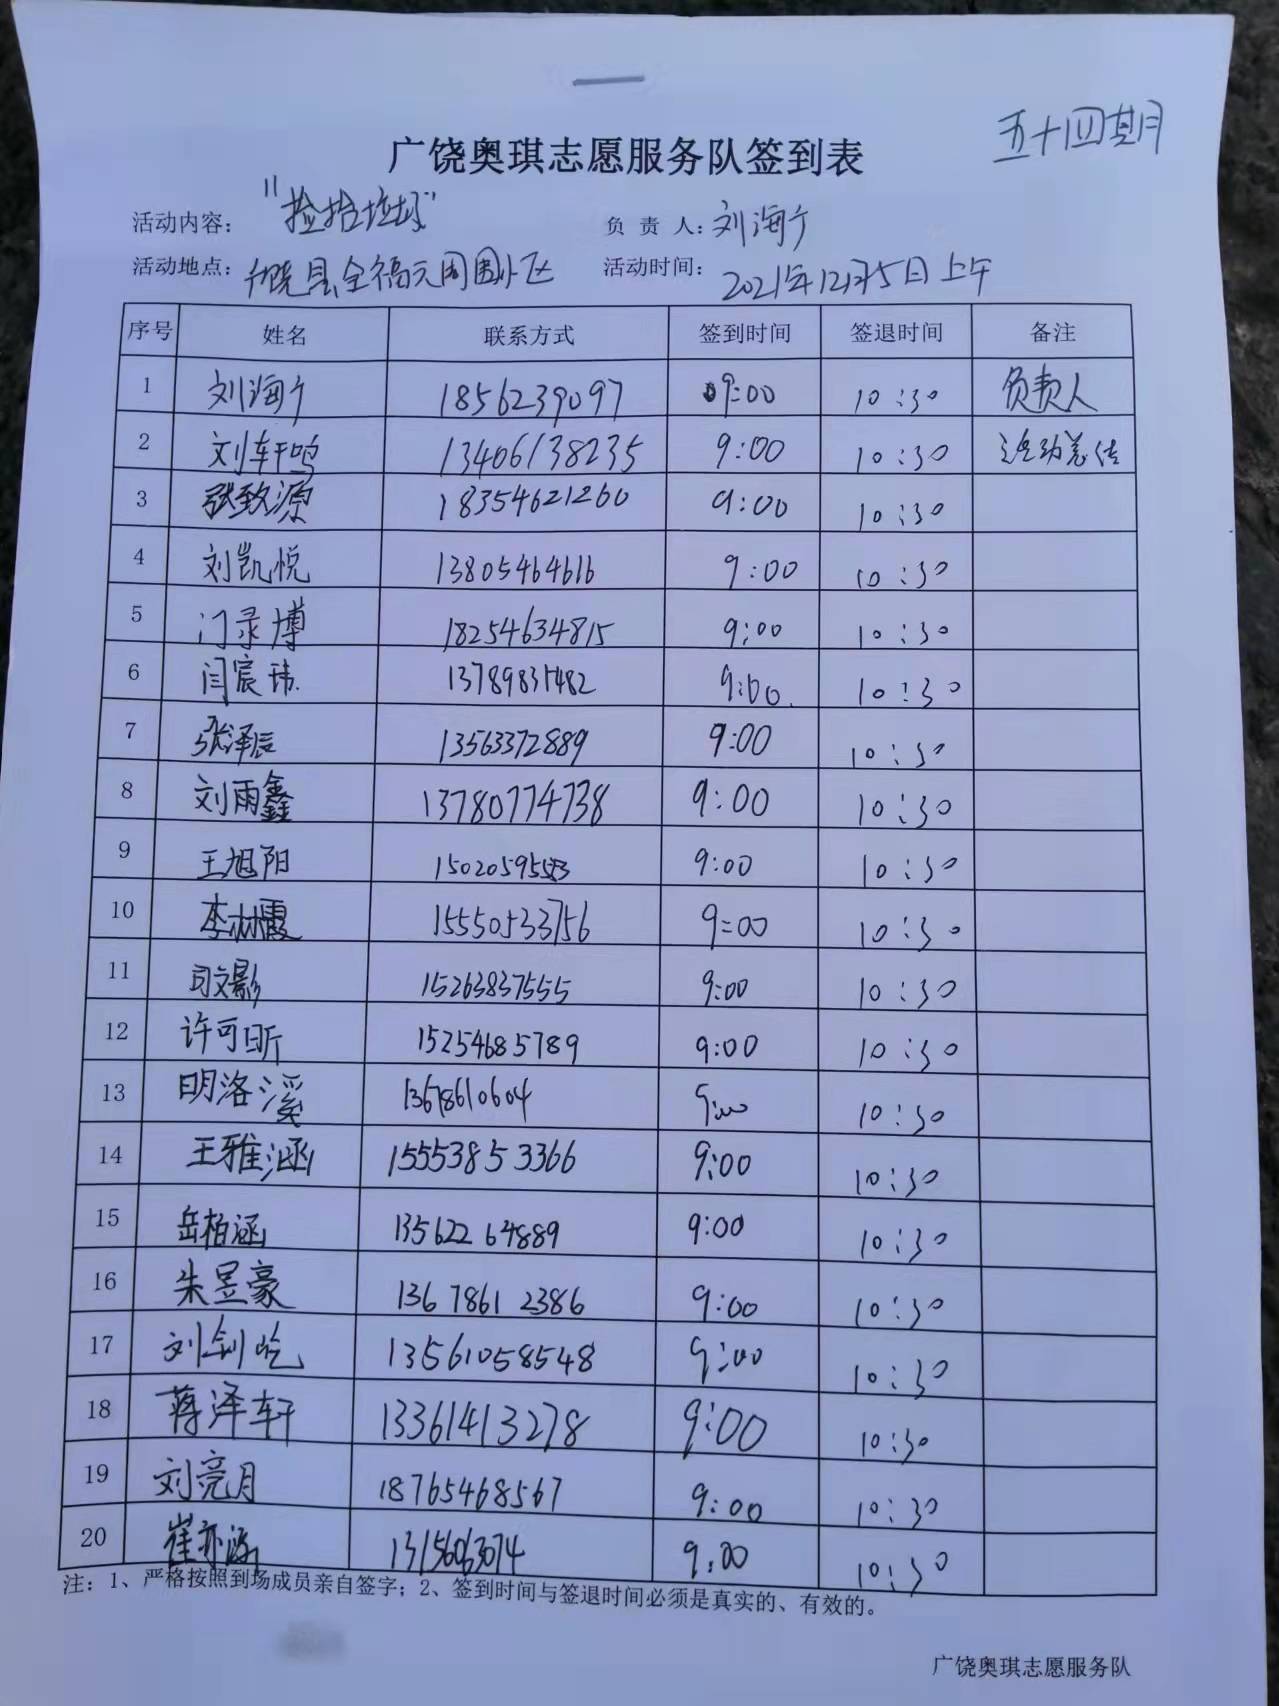 五十四期
广饶奥琪志愿服务队签到表
活动内容： "捡拾垃圾" 负 责 人：刘海宁
活动地点：广饶县全福元周围小区 活动时间：2021年12月5日上午
序号 姓名 联系方式 签到时间 签退时间 备注
1 刘海宁 18562239097 9:00 10:30 负责人
2 刘轩鸣 13406138235 9:00 10:30 活动总结
3 张致源 18354621260 9:00 10:30
4 刘凯悦 13805464616 9:00 10:30
5 门录博 18254634815 9:00 10:30
6 闫宸玮 13789831482 9:00 10:30
7 张泽辰 13563372889 9:00 10:30
8 刘雨鑫 13780774738 9:00 10:30
9 王旭阳 9:00 10:30
10 李林霞 15550533756 9:00 10:30
11 司文影 15263837555 9:00 10:30
12 许可昕 15254685789 9:00 10:30
13 明洛溪 13678610604 9:00 10:30
14 王雅涵 15553853366 9:00 10:30
15 岳柏涵 13562264889 9:00 10:30
16 朱昱豪 13678612386 9:00 10:30
17 刘钊屹 13561058548 9:00 10:30
18 蒋泽轩 13361413278 9:00 10:30
19 刘亮月 18765468567 9:00 10:30
20 崔亦涵 9:00 10:30
注：1、严格按照到场成员亲自签字；2、签到时间与签退时间必须是真实的、有效的。
广饶奥琪志愿服务队